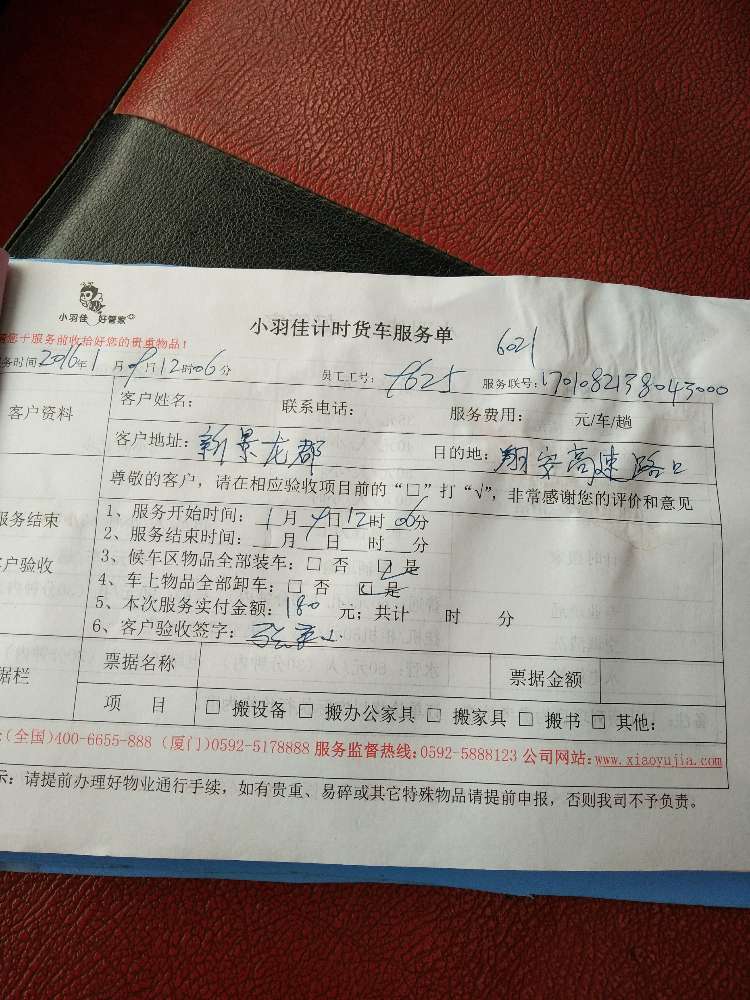 小羽佳 好管家
小羽佳计时货车服务单
6021
您于服务前收拾好您的贵重物品！
务时间2016年1月9日12时06分 员工工号：f625 服务联号：1701082138043000
客户资料
客户姓名： 联系电话： 服务费用： 元/车/趟
客户地址：新景龙郡 目的地：翔安高速路口
尊敬的客户，请在相应验收项目前的“□”打“√”，非常感谢您的评价和意见
服务结束
客户验收
1、服务开始时间：1月9日12时06分
2、服务结束时间：__月__日__时__分
3、候车区物品全部装车：□ 否 ☑ 是
4、车上物品全部卸车：□ 否 ☑ 是
5、本次服务实付金额：180元；共计 时 分
6、客户验收签字：
据栏
票据名称 票据金额
项 目 □ 搬设备 □ 搬办公家具 □ 搬家具 □ 搬书 □ 其他：
：(全国)400-6655-888 (厦门)0592-5178888 服务监督热线：0592-5888123 公司网站：www.xiaoyujia.com
示：请提前办理好物业通行手续，如有贵重、易碎或其它特殊物品请提前申报，否则我司不予负责。